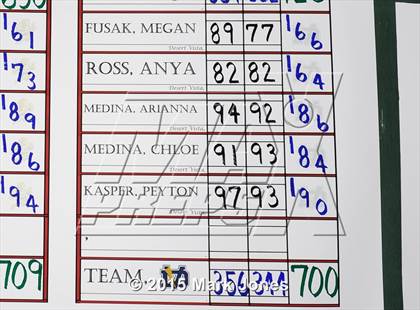 161 FUSAK, MEGAN 89 77 166
Desert Vista,
173 ROSS, ANYA 82 82 164
Desert Vista,
189 MEDINA, ARIANNA 94 92 186
Desert Vista,
186 MEDINA, CHLOE 91 93 184
Desert Vista,
194 KASPER, PEYTON 97 93 190
Desert Vista,
709 TEAM, 356 344 700
MAX
PREPS
©2015 Mark Jones